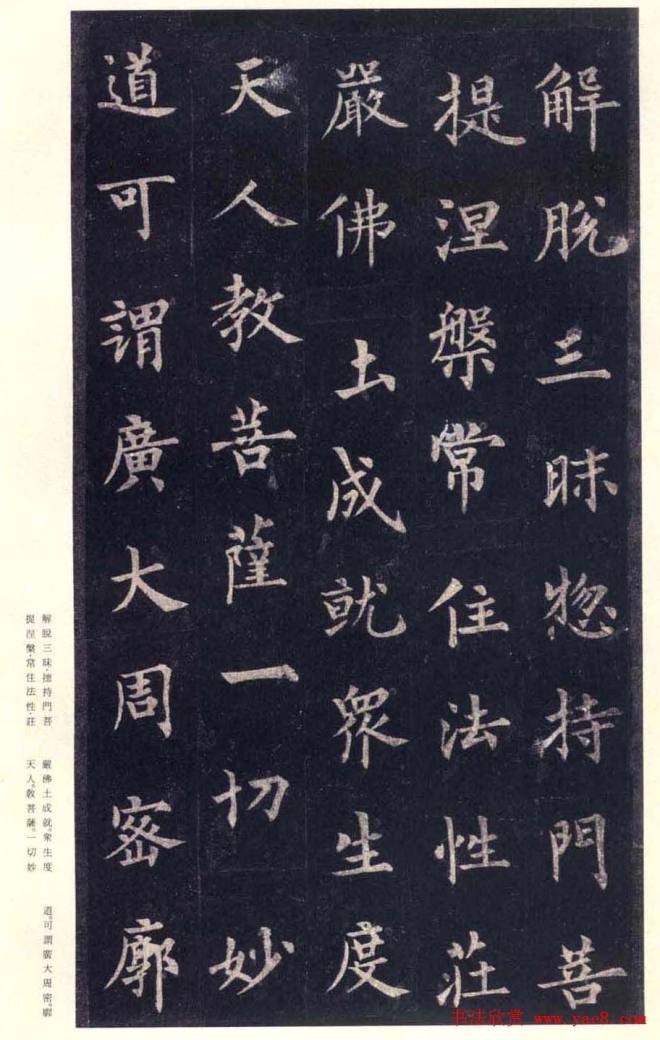 解脫三昧惣持門菩
提涅槃常住法性莊
嚴佛土成就衆生度
天人教菩薩一切妙
道可謂廣大周密廓
解脫三昧·揔持門菩
提涅槃·常住法性·莊
嚴佛土成就。衆生度
天人。教菩薩。一切妙
道。可謂廣大周密。廓
书法欣赏 www.yac8.com